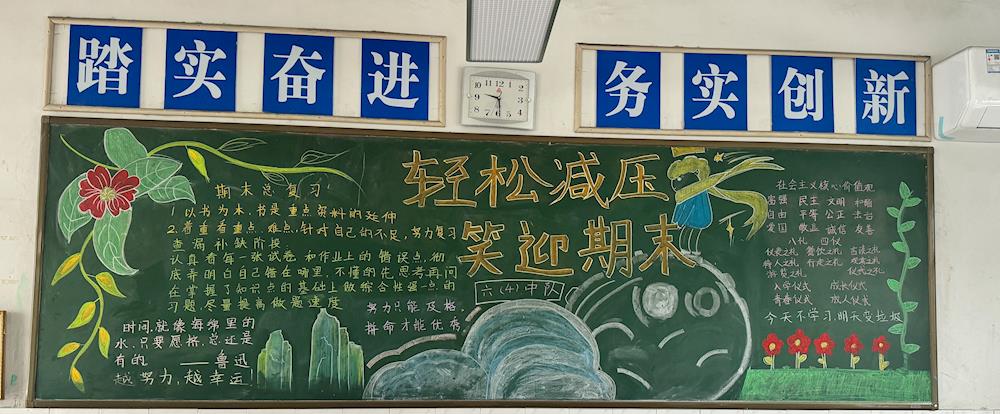 踏实奋进
务实创新
轻松减压
笑迎期末
六(4)中队
期末总复习
1.以书为本,书是重点资料的延伸
2.着重看重点、难点,针对自己的不足,努力复习
查漏补缺阶段:
认真看每一张试卷和作业上的错误点,彻
底弄明白自己错在哪里,不懂的先思考再问
在掌握了知识点的基础上做综合性强一点的
习题尽量提高做题速度
时间,就像海绵里的
水,只要愿挤,总还是
有的. ——鲁迅
越努力,越幸运.
努力只能及格,
拼命才能优秀.
社会主义核心价值观
富强 民主 文明 和谐
自由 平等 公正 法治
爱国 敬业 诚信 友善
八礼 四仪
仪表之礼 餐饮之礼 言谈之礼
待人之礼 行走之礼 观赏之礼
游览之礼 仪式之礼
入学仪式 成长仪式
青春仪式 成人仪式
今天不学习,明天变垃圾